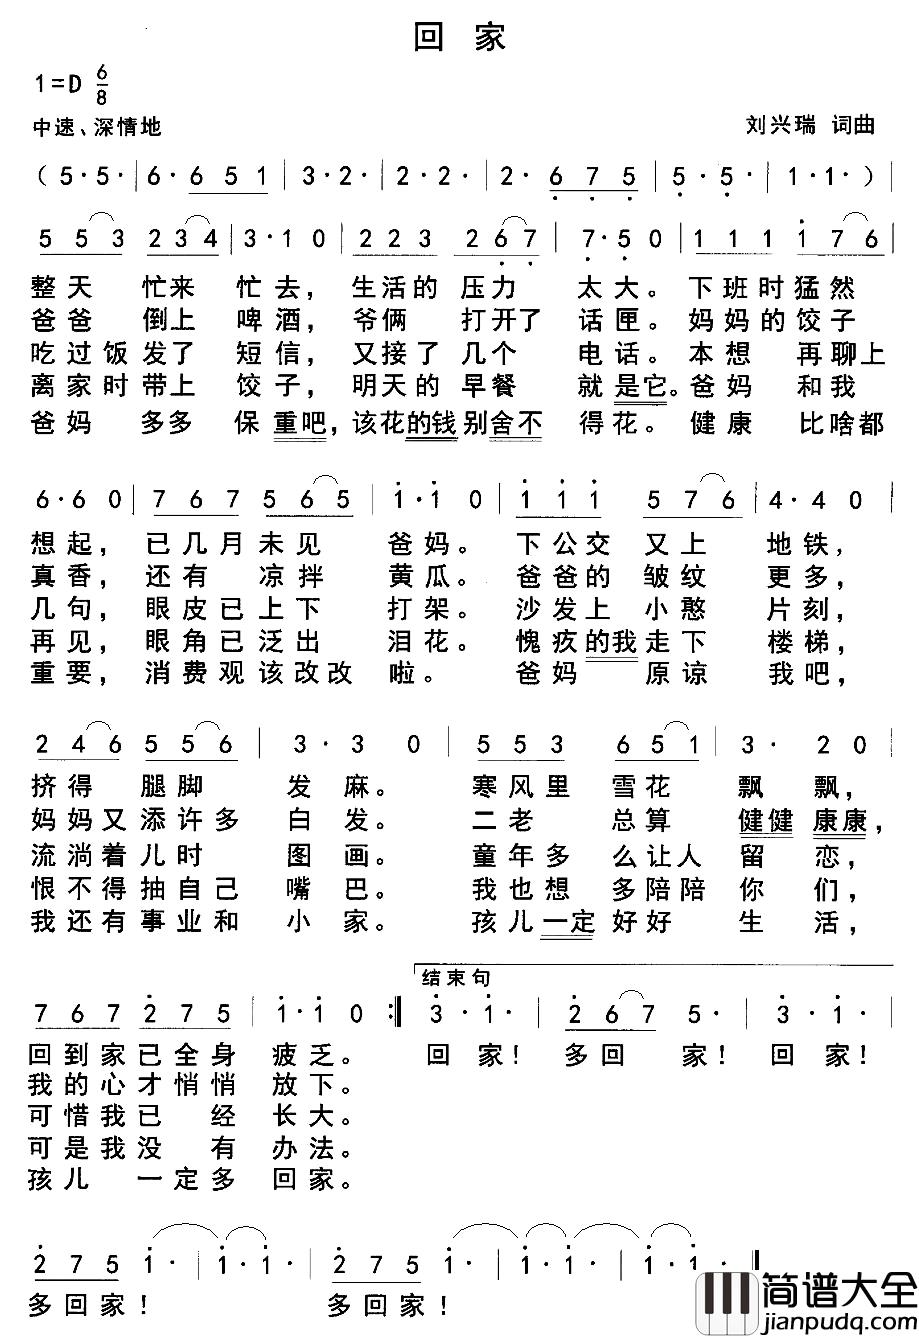 回 家
1=D 6/8
中速、深情地
刘兴瑞 词曲
( 5· 5· | 6· 6 5 1 | 3· 2· | 2· 2· | 2· 6 7 5 | 5· 5· | 1· 1· ) |
5 5 3 2 3 4 | 3· 1 0 | 2 2 3 2 6 7 | 7· 5 0 | 1 1 1 1 7 6 |
整天 忙来 忙去, 生活的 压力 太大。 下班时猛然
爸爸 倒上 啤酒, 爷俩 打开了 话匣。 妈妈的饺子
吃过饭发了 短信, 又接了 几个 电话。 本想 再聊上
离家时带上 饺子, 明天的 早餐 就是它。 爸妈 和我
爸妈 多多 保重吧, 该花的钱别舍不 得花。 健康 比啥都
6· 6 0 | 7 6 7 5 6 5 | 1· 1 0 | 1 1 1 5 7 6 | 4· 4 0 |
想起, 已几月未见 爸妈。 下公交又上 地铁,
真香, 还有 凉拌 黄瓜。 爸爸的皱纹 更多,
几句, 眼皮已上下 打架。 沙发上小憨 片刻,
再见, 眼角已泛出 泪花。 愧疚的我走下 楼梯,
重要, 消费观该改改 啦。 爸妈 原谅 我吧,
2 4 6 5 5 6 | 3· 3 0 | 5 5 3 6 5 1 | 3· 2 0 |
挤得 腿脚 发麻。 寒风里雪花 飘飘,
妈妈又添许多 白发。 二老 总算 健健康康,
流淌着儿时 图画。 童年多么让人 留恋,
恨不得抽自己 嘴巴。 我也想 多陪陪 你们,
我还有事业和 小家。 孩儿一定好好 生活,
结束句
7 6 7 2 7 5 | 1· 1 0 :‖ 3· 1· | 2 6 7 5· | 3· 1· |
回到家已全身 疲乏。 回家! 多回 家! 回家!
我的心才悄悄 放下。
可惜我已 经 长大。
可是我没 有 办法。
孩儿 一定多 回家。
2 7 5 1· | 1· 1· | 2 7 5 1· | 1· 1· | 1· 1· ‖
多回家! 多回家!
简谱大全
jianpudq.com